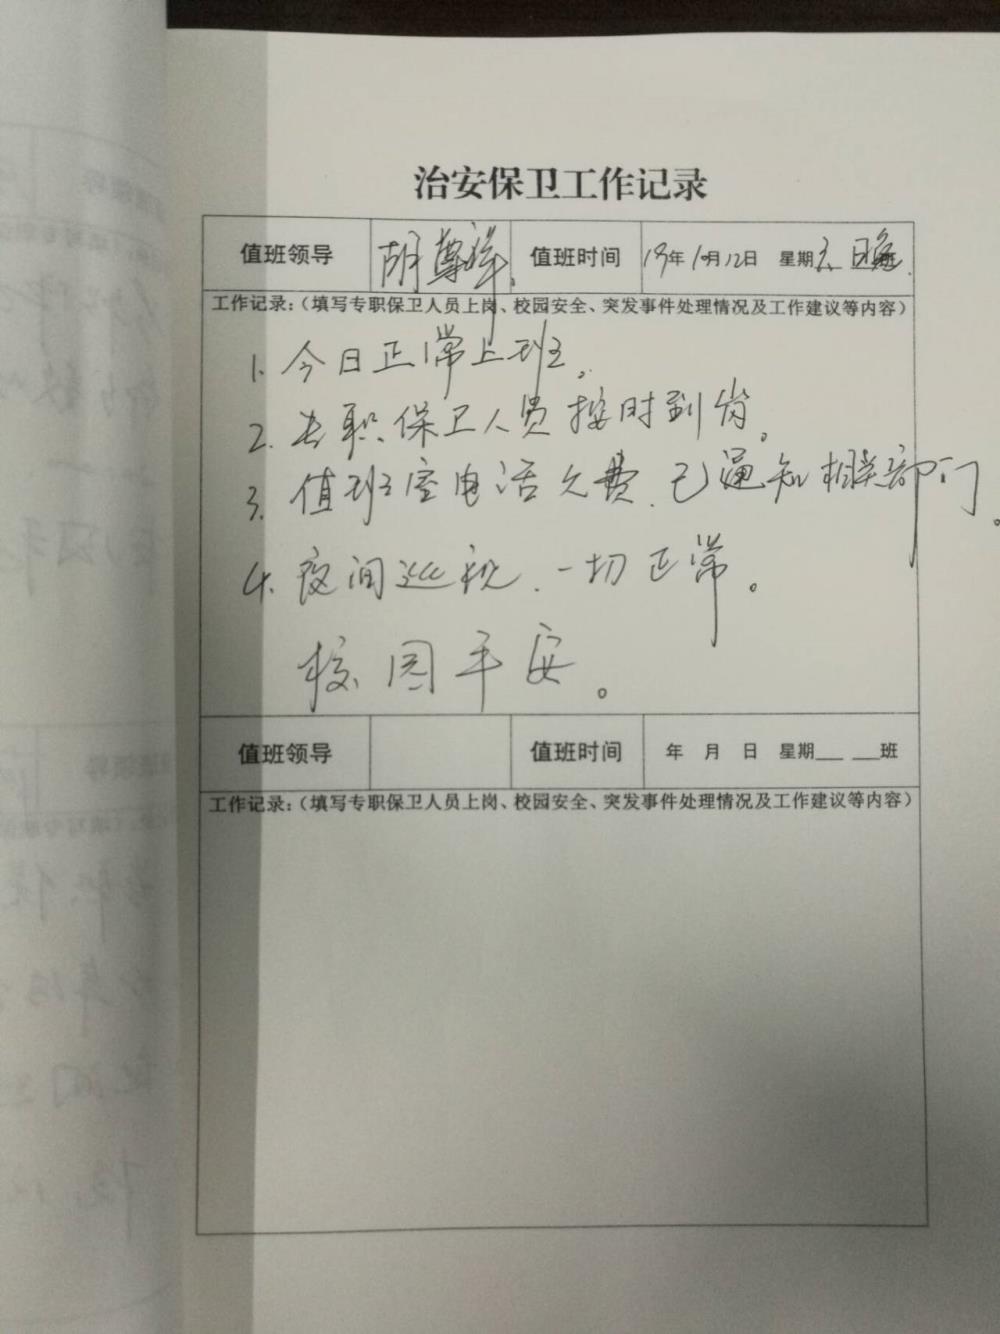 治安保卫工作记录
值班领导 胡尊祥. 值班时间 19年10月12日 星期六 日晚
工作记录:(填写专职保卫人员上岗、校园安全、突发事件处理情况及工作建议等内容)
1. 今日正常上班。
2. 专职保卫人员按时到岗。
3. 值班室电话欠费.已通知相关部门。
4. 夜间巡视.一切正常。
校园平安。
值班领导 值班时间 年 月 日 星期___ ___班
工作记录:(填写专职保卫人员上岗、校园安全、突发事件处理情况及工作建议等内容)